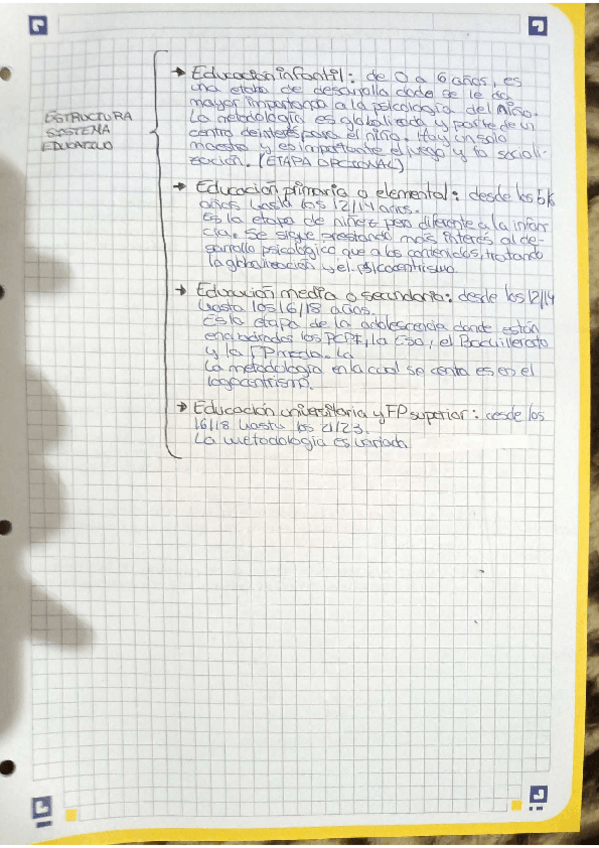 ESTRUCTURA
SISTEMA
EDUCATIVO
→ Educación infantil: de 0 a 6 años, es
una etapa de desarrollo donde se le da
mayor importancia a la psicología del niño.
La metodología es globalizada y parte de un
centro de interés para el niño. Hay un solo
maestro y es importante el juego y la sociali-
zación. (ETAPA OPCIONAL)
→ Educación primaria o elemental: desde los 5/6
años hasta los 12/14 años.
Es la etapa de niñez pero diferente a la infan-
cia. Se sigue prestando más interés al de-
sarrollo psicológico que a los contenidos, tratando
la globalización y el psicocentrismo.
→ Educación media o secundaria: desde los 12/14
hasta los 16/18 años.
Es la etapa de la adolescencia donde están
englobados los PCPI, la ESO, el Bachillerato
y la FP media. La
La metodología en la cual se centra es en el
logocentrismo.
→ Educación universitaria y FP superior: desde los
16/18 hasta los 21/23.
La metodología es variada